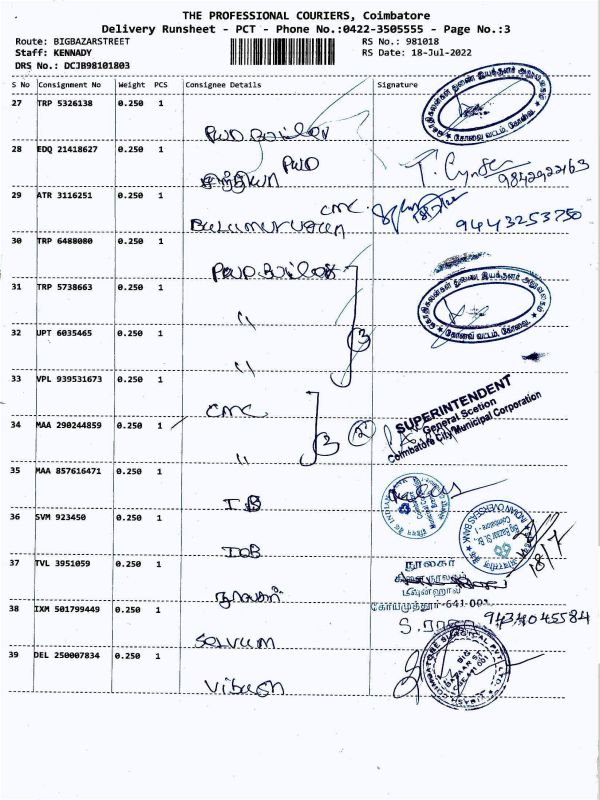 THE PROFESSIONAL COURIERS, Coimbatore
Delivery Runsheet - PCT - Phone No.:0422-3505555 - Page No.:3
Route: BIGBAZARSTREET
RS No.: 981018
Staff: KENNADY
RS Date: 18-Jul-2022
DRS No.: DCJB98101803
S No Consignment No Weight PCS Consignee Details Signature
27 TRP 5326138 0.250 1
28 EDQ 21418627 0.250 1
PWD
9842922163
29 ATR 3116251 0.250 1
CMC
Balamurugan
9443253750
30 TRP 6488080 0.250 1
31 TRP 5738663 0.250 1
"
32 UPT 6035465 0.250 1
"
3
33 VPL 939531673 0.250 1
CMC
SUPERINTENDENT
General Scetion
Coimbatore City Municipal Corporation
34 MAA 290244859 0.250 1
"
35 MAA 857616471 0.250 1
IB
36 SVM 923450 0.250 1
IOB
INDIAN OVERSEAS BANK
18/7
37 TVL 3951059 0.250 1
நூலகர்
கிளை நூலகம்
டவுன்ஹால்
கோயமுத்தூர்-641 001
38 IXM 501799449 0.250 1
Selvam
9434045584
39 DEL 250007834 0.250 1
Vibash